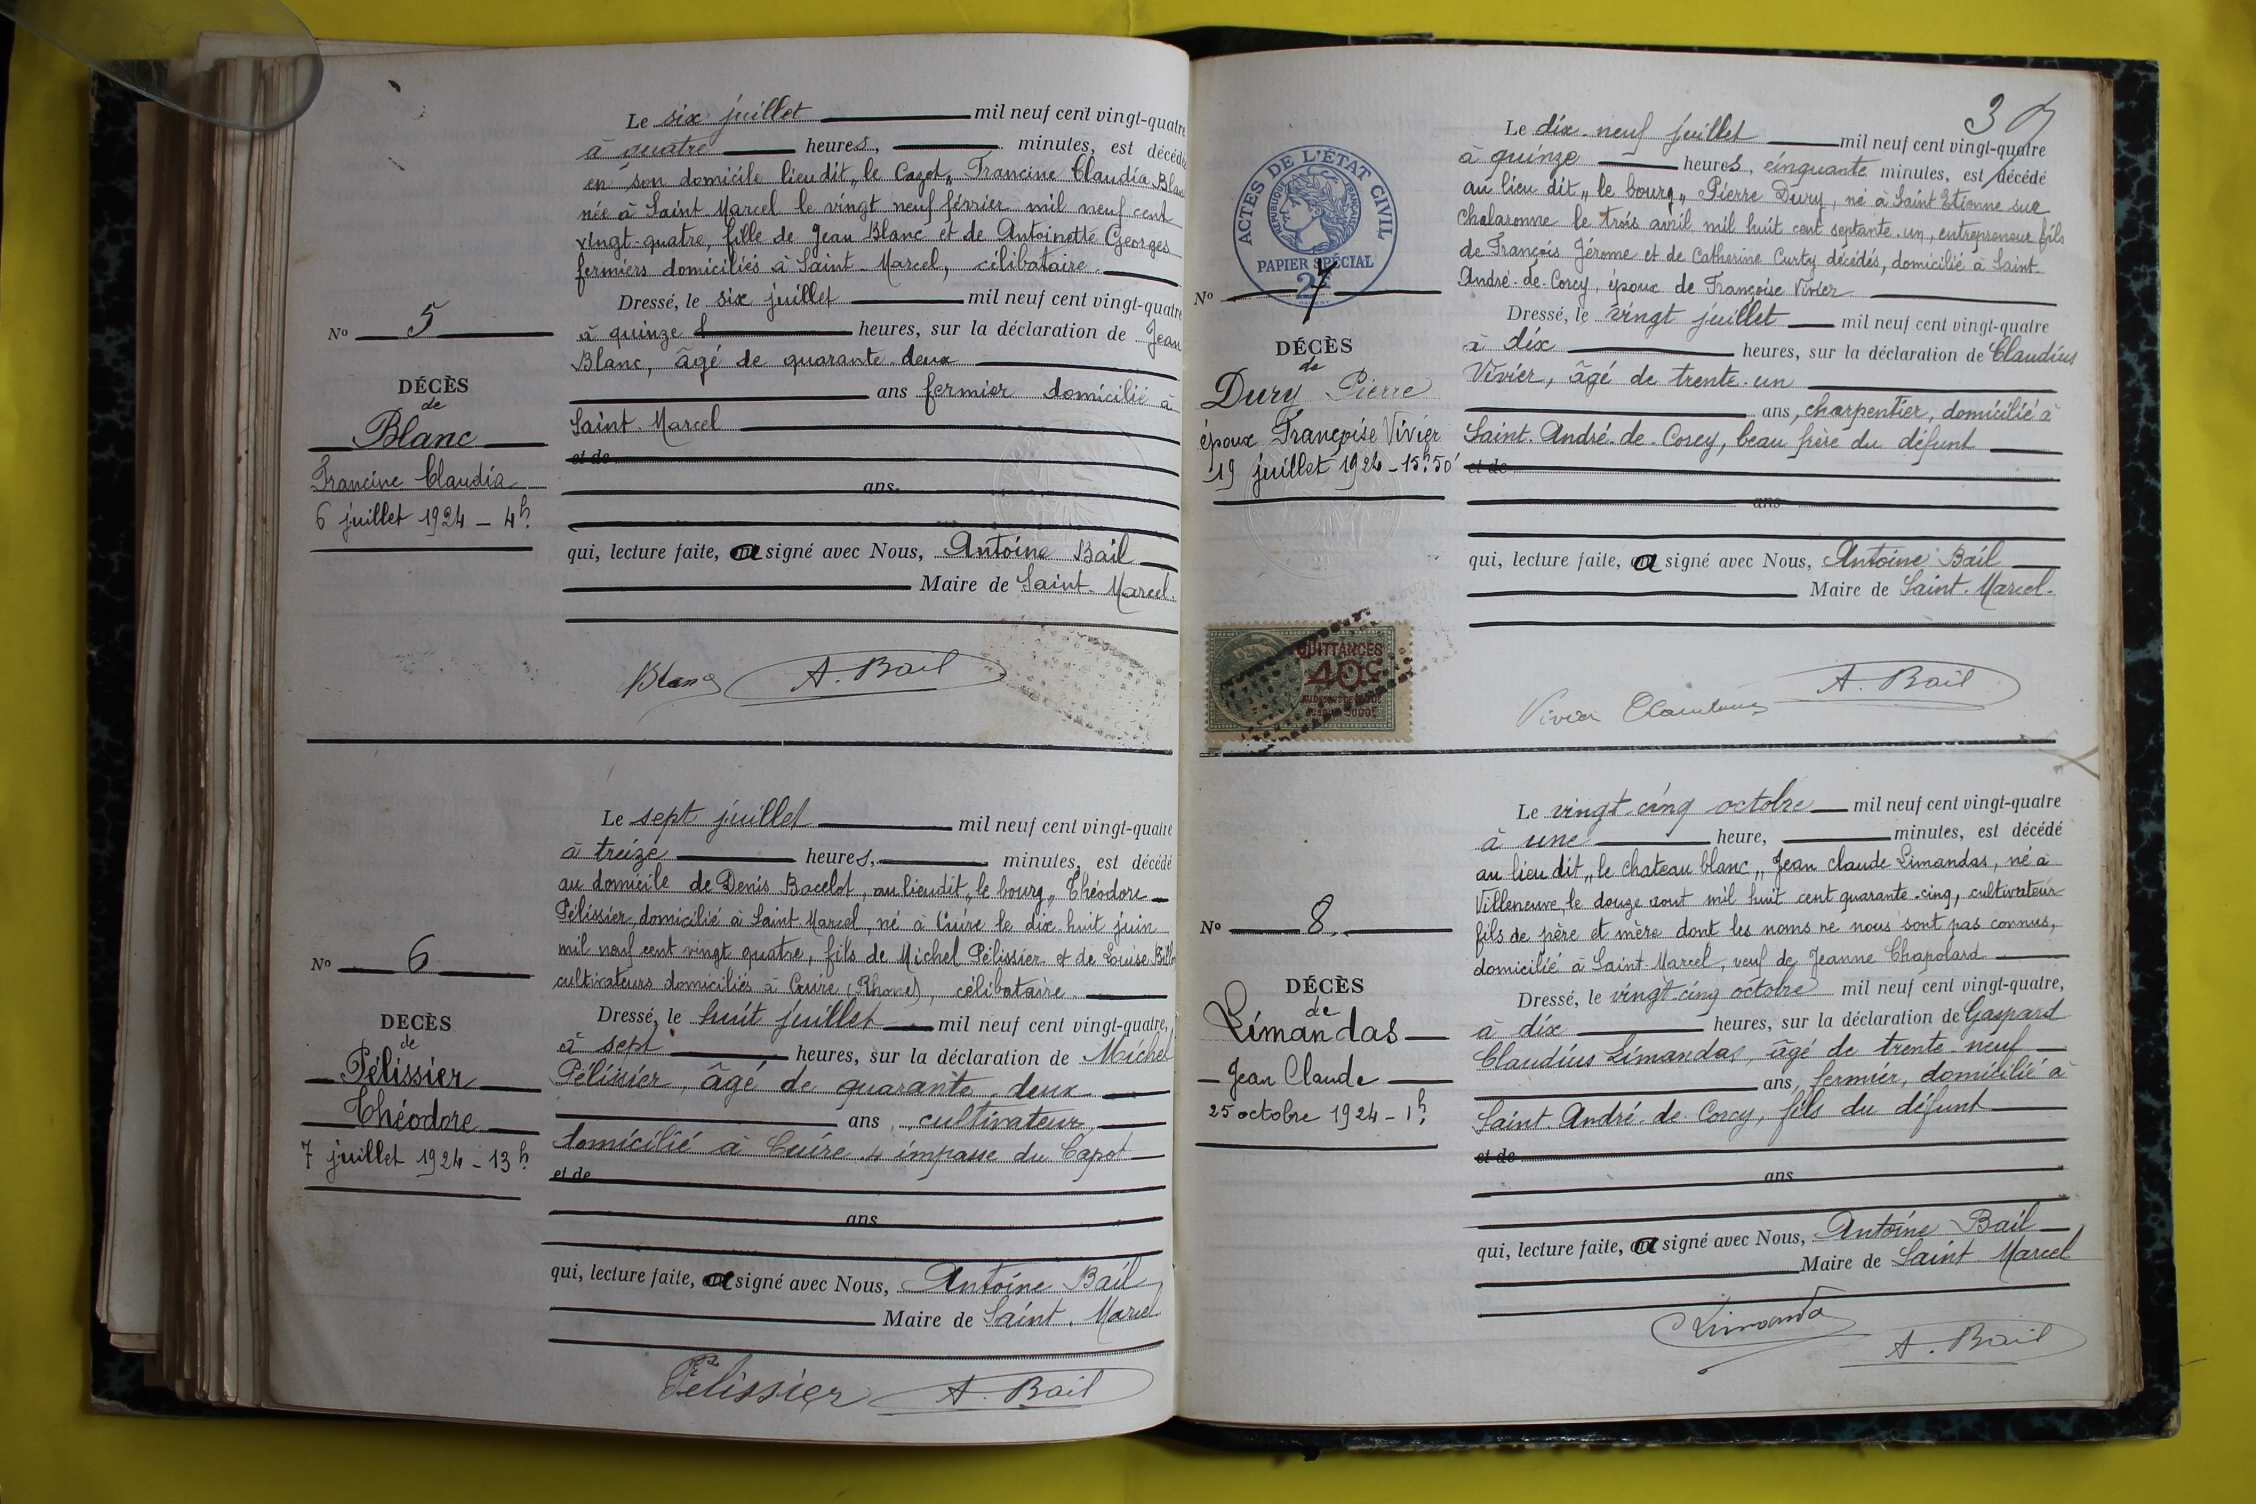 Le six juillet mil neuf cent vingt-quatre
à quatre heures, minutes, est décédée
en son domicile lieu dit „le Cazot„ Francine Claudia Blanc
née à Saint Marcel le vingt neuf février mil neuf cent
vingt-quatre, fille de Jean Blanc et de Antoinette Georges
fermiers domiciliés à Saint-Marcel, célibataire.
Dressé, le six juillet mil neuf cent vingt-quatre
à quinze heures, sur la déclaration de Jean
Blanc, âgé de quarante-deux
ans fermier domicilié à
Saint-Marcel
et de
ans
qui, lecture faite, a signé avec Nous, Antoine Bail
Maire de Saint-Marcel.
Blanc A. Bail
No 5
DÉCÈS
de
Blanc
Francine Claudia
6 juillet 1924 - 4h.
Le sept juillet mil neuf cent vingt-quatre
à treize heures, minutes, est décédé
au domicile de Denis Bacelot, au lieudit „le bourg„ Théodore
Pélissier, domicilié à Saint Marcel, né à Cuire le dix huit juin
mil neuf cent vingt quatre, fils de Michel Pélissier et de Louise
cultivateurs domiciliés à Cuire (Rhône), célibataire.
Dressé, le huit juillet mil neuf cent vingt-quatre,
à sept heures, sur la déclaration de Michel
Pélissier, âgé de quarante-deux
ans, cultivateur,
domicilié à Cuire 4 impasse du Capot
et de
ans
qui, lecture faite, a signé avec Nous, Antoine Bail
Maire de Saint-Marcel
Pélissier A. Bail
No 6
DÉCÈS
de
Pélissier
Théodore
7 juillet 1924 - 13h.
37
Le dix-neuf juillet mil neuf cent vingt-quatre
à quinze heures, cinquante minutes, est décédé
au lieu dit „le bourg„ Pierre Dury, né à Saint Etienne sur
Chalaronne le trois avril mil huit cent septante-un, entrepreneur fils
de François Jérome et de Catherine Curty décédés, domicilié à Saint-
André-de-Corcy, époux de Françoise Vivier
Dressé, le vingt juillet mil neuf cent vingt-quatre
à dix heures, sur la déclaration de Claudius
Vivier, âgé de trente-un
ans, charpentier, domicilié à
Saint-André-de-Corcy, beau frère du défunt
et de
ans
qui, lecture faite, a signé avec Nous, Antoine Bail
Maire de Saint-Marcel.
Vivier Claudius A. Bail
ACTES DE L'ÉTAT CIVIL
RÉPUBLIQUE FRANÇAISE
PAPIER SPÉCIAL
2F
No 7
DÉCÈS
de
Dury Pierre
époux Françoise Vivier
19 juillet 1924 - 15h.50'
QUITTANCES
40c
Le vingt-cinq octobre mil neuf cent vingt-quatre
à une heure, minutes, est décédé
au lieu dit „le chateau blanc„ Jean Claude Limandas, né à
Villeneuve, le douze aout mil huit cent quarante-cinq, cultivateur
fils de père et mère dont les noms ne nous sont pas connus,
domicilié à Saint-Marcel, veuf de Jeanne Chapolard
Dressé, le vingt-cinq octobre mil neuf cent vingt-quatre,
à dix heures, sur la déclaration de Gaspard
Claudius Limandas, âgé de trente-neuf
ans, fermier, domicilié à
Saint-André-de-Corcy, fils du défunt
et de
ans
qui, lecture faite, a signé avec Nous, Antoine Bail
Maire de Saint Marcel
Limanda A. Bail
No 8
DÉCÈS
de
Limandas
Jean Claude
25 octobre 1924 - 1h.